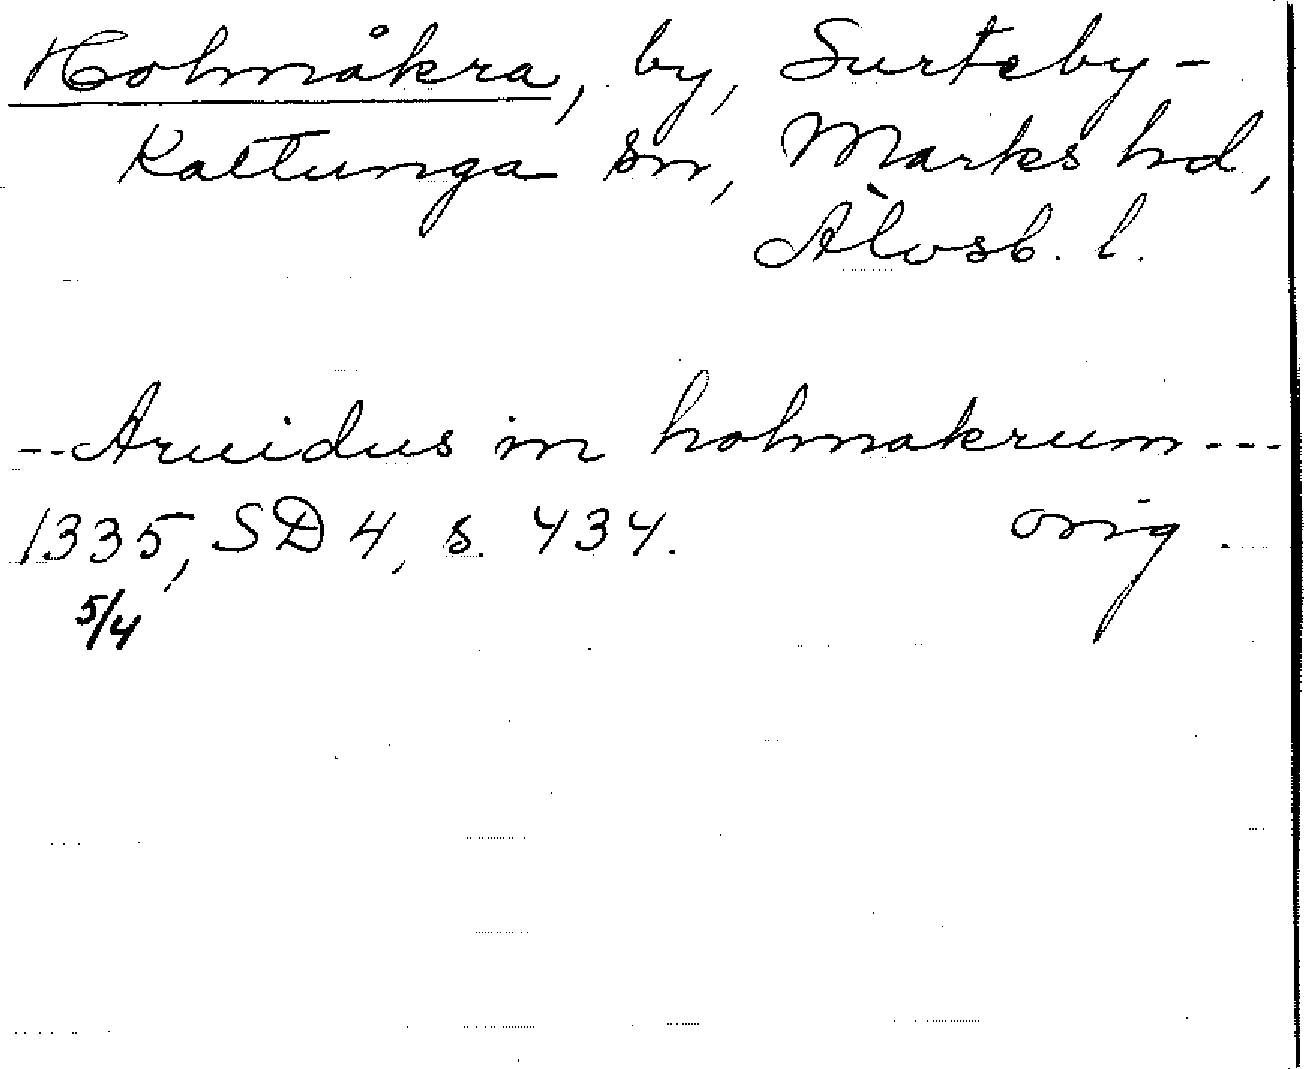 Holmåkra, by, Surteby-
Kattunga sn, Marks hd,
Älvsb. l.
--Aruidus in holmakrum---
1335, SD 4, s. 434. orig.
5/4